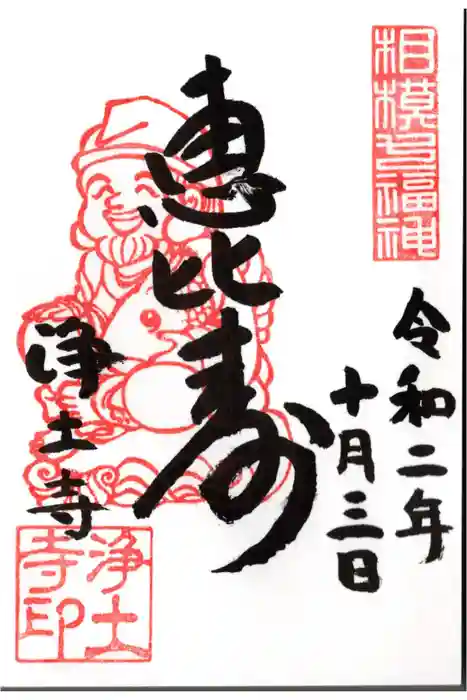 相模七福神
令和二年
十月三日
恵比寿
浄土寺
浄土寺印